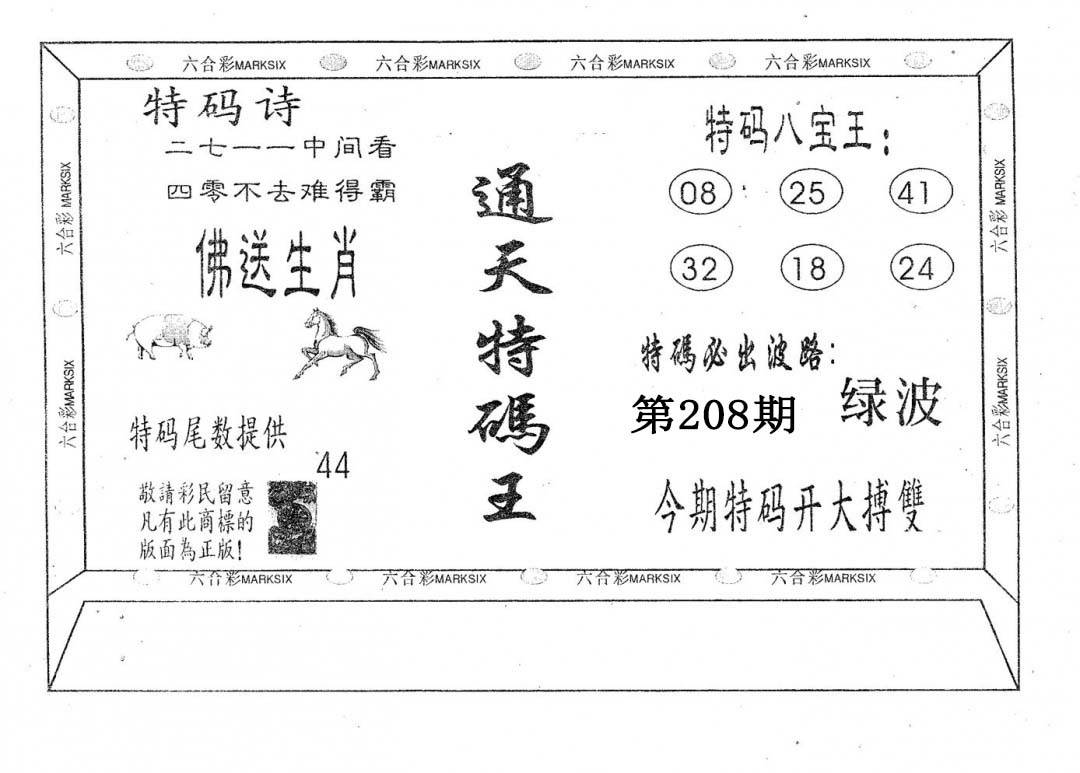 六合彩MARKSIX 六合彩MARKSIX 六合彩MARKSIX 六合彩MARKSIX
六合彩 MARKSIX
六合彩MARKSIX
特码诗
二七一一中间看
四零不去难得霸
佛送生肖
特码尾数提供
44
敬請彩民留意
凡有此商標的
版面為正版!
通天特碼王
特码八宝王:
08 25 41
32 18 24
特碼必出波路:
绿波
第208期
今期特码开大搏雙
六合彩 MARKSIX
六合彩MARKSIX
六合彩MARKSIX 六合彩MARKSIX 六合彩MARKSIX 六合彩MARKSIX